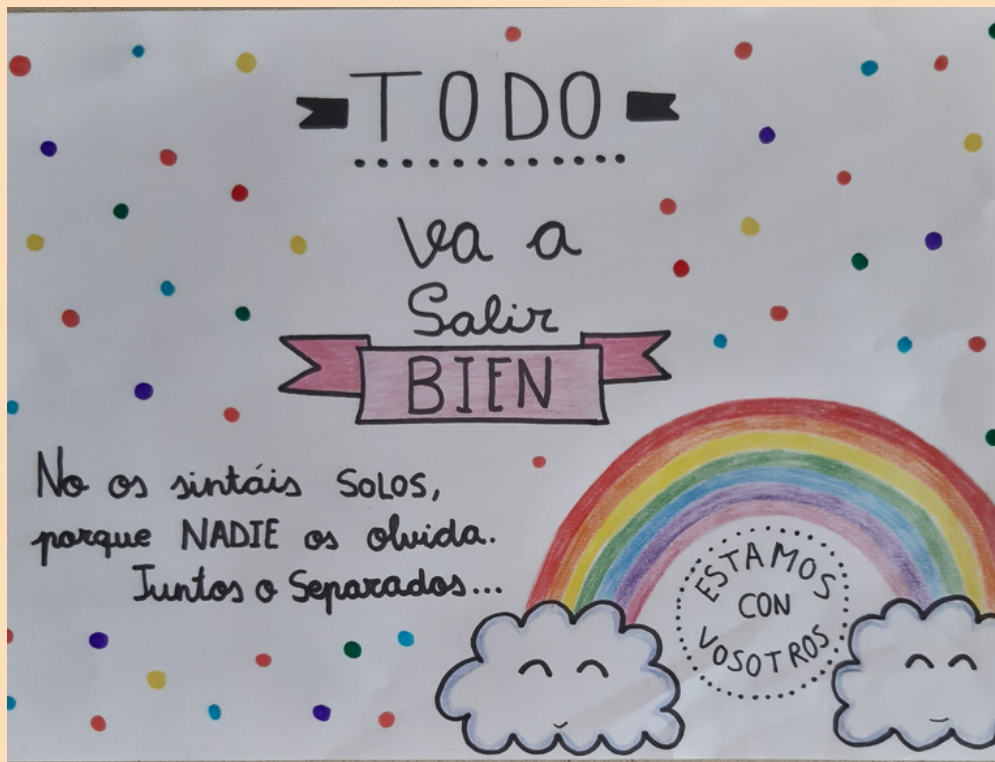 TODO
va a
Salir
BIEN
No os sintáis SOLOS,
porque NADIE os olvida.
Juntos o Separados...
ESTAMOS
CON
VOSOTROS